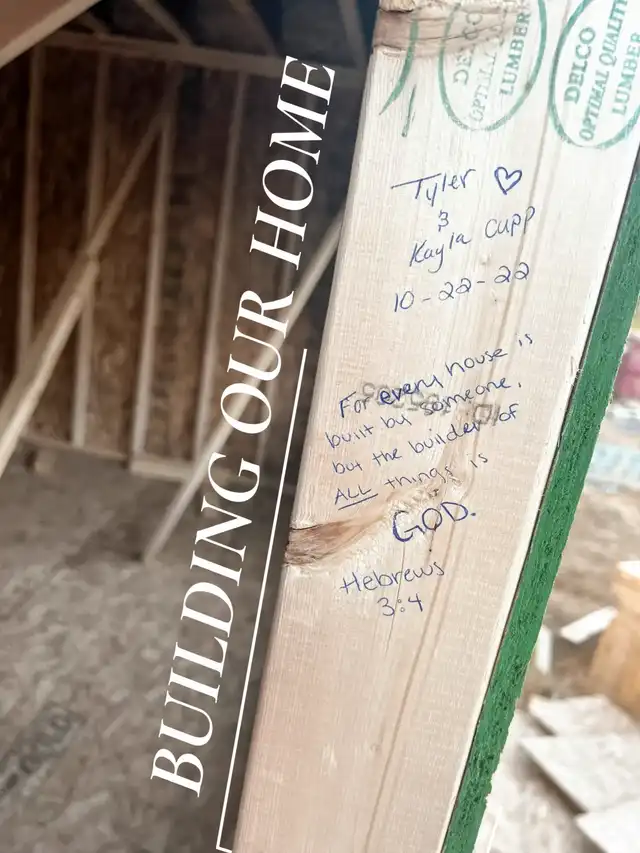 BUILDING OUR HOME
DELCO
OPTIMAL QUALITY
LUMBER
DELCO
OPTIMAL QUALITY
LUMBER
Tyler ♡
&
Kayla Cupp
10-22-22
For every house is
built by someone,
but the builder of
ALL things is
GOD.
Hebrews
3:4